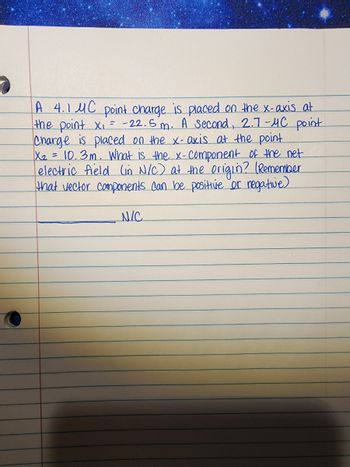 A 4.1 μC point charge is placed on the x-axis at
the point x₁ = -22.5 m. A second, 2.7-μC point
charge is placed on the x-axis at the point
X₂ = 10.3m. What is the x-component of the net
electric field (in N/C) at the origin? (Remember
that vector components can be positive or negative)
________ N/C